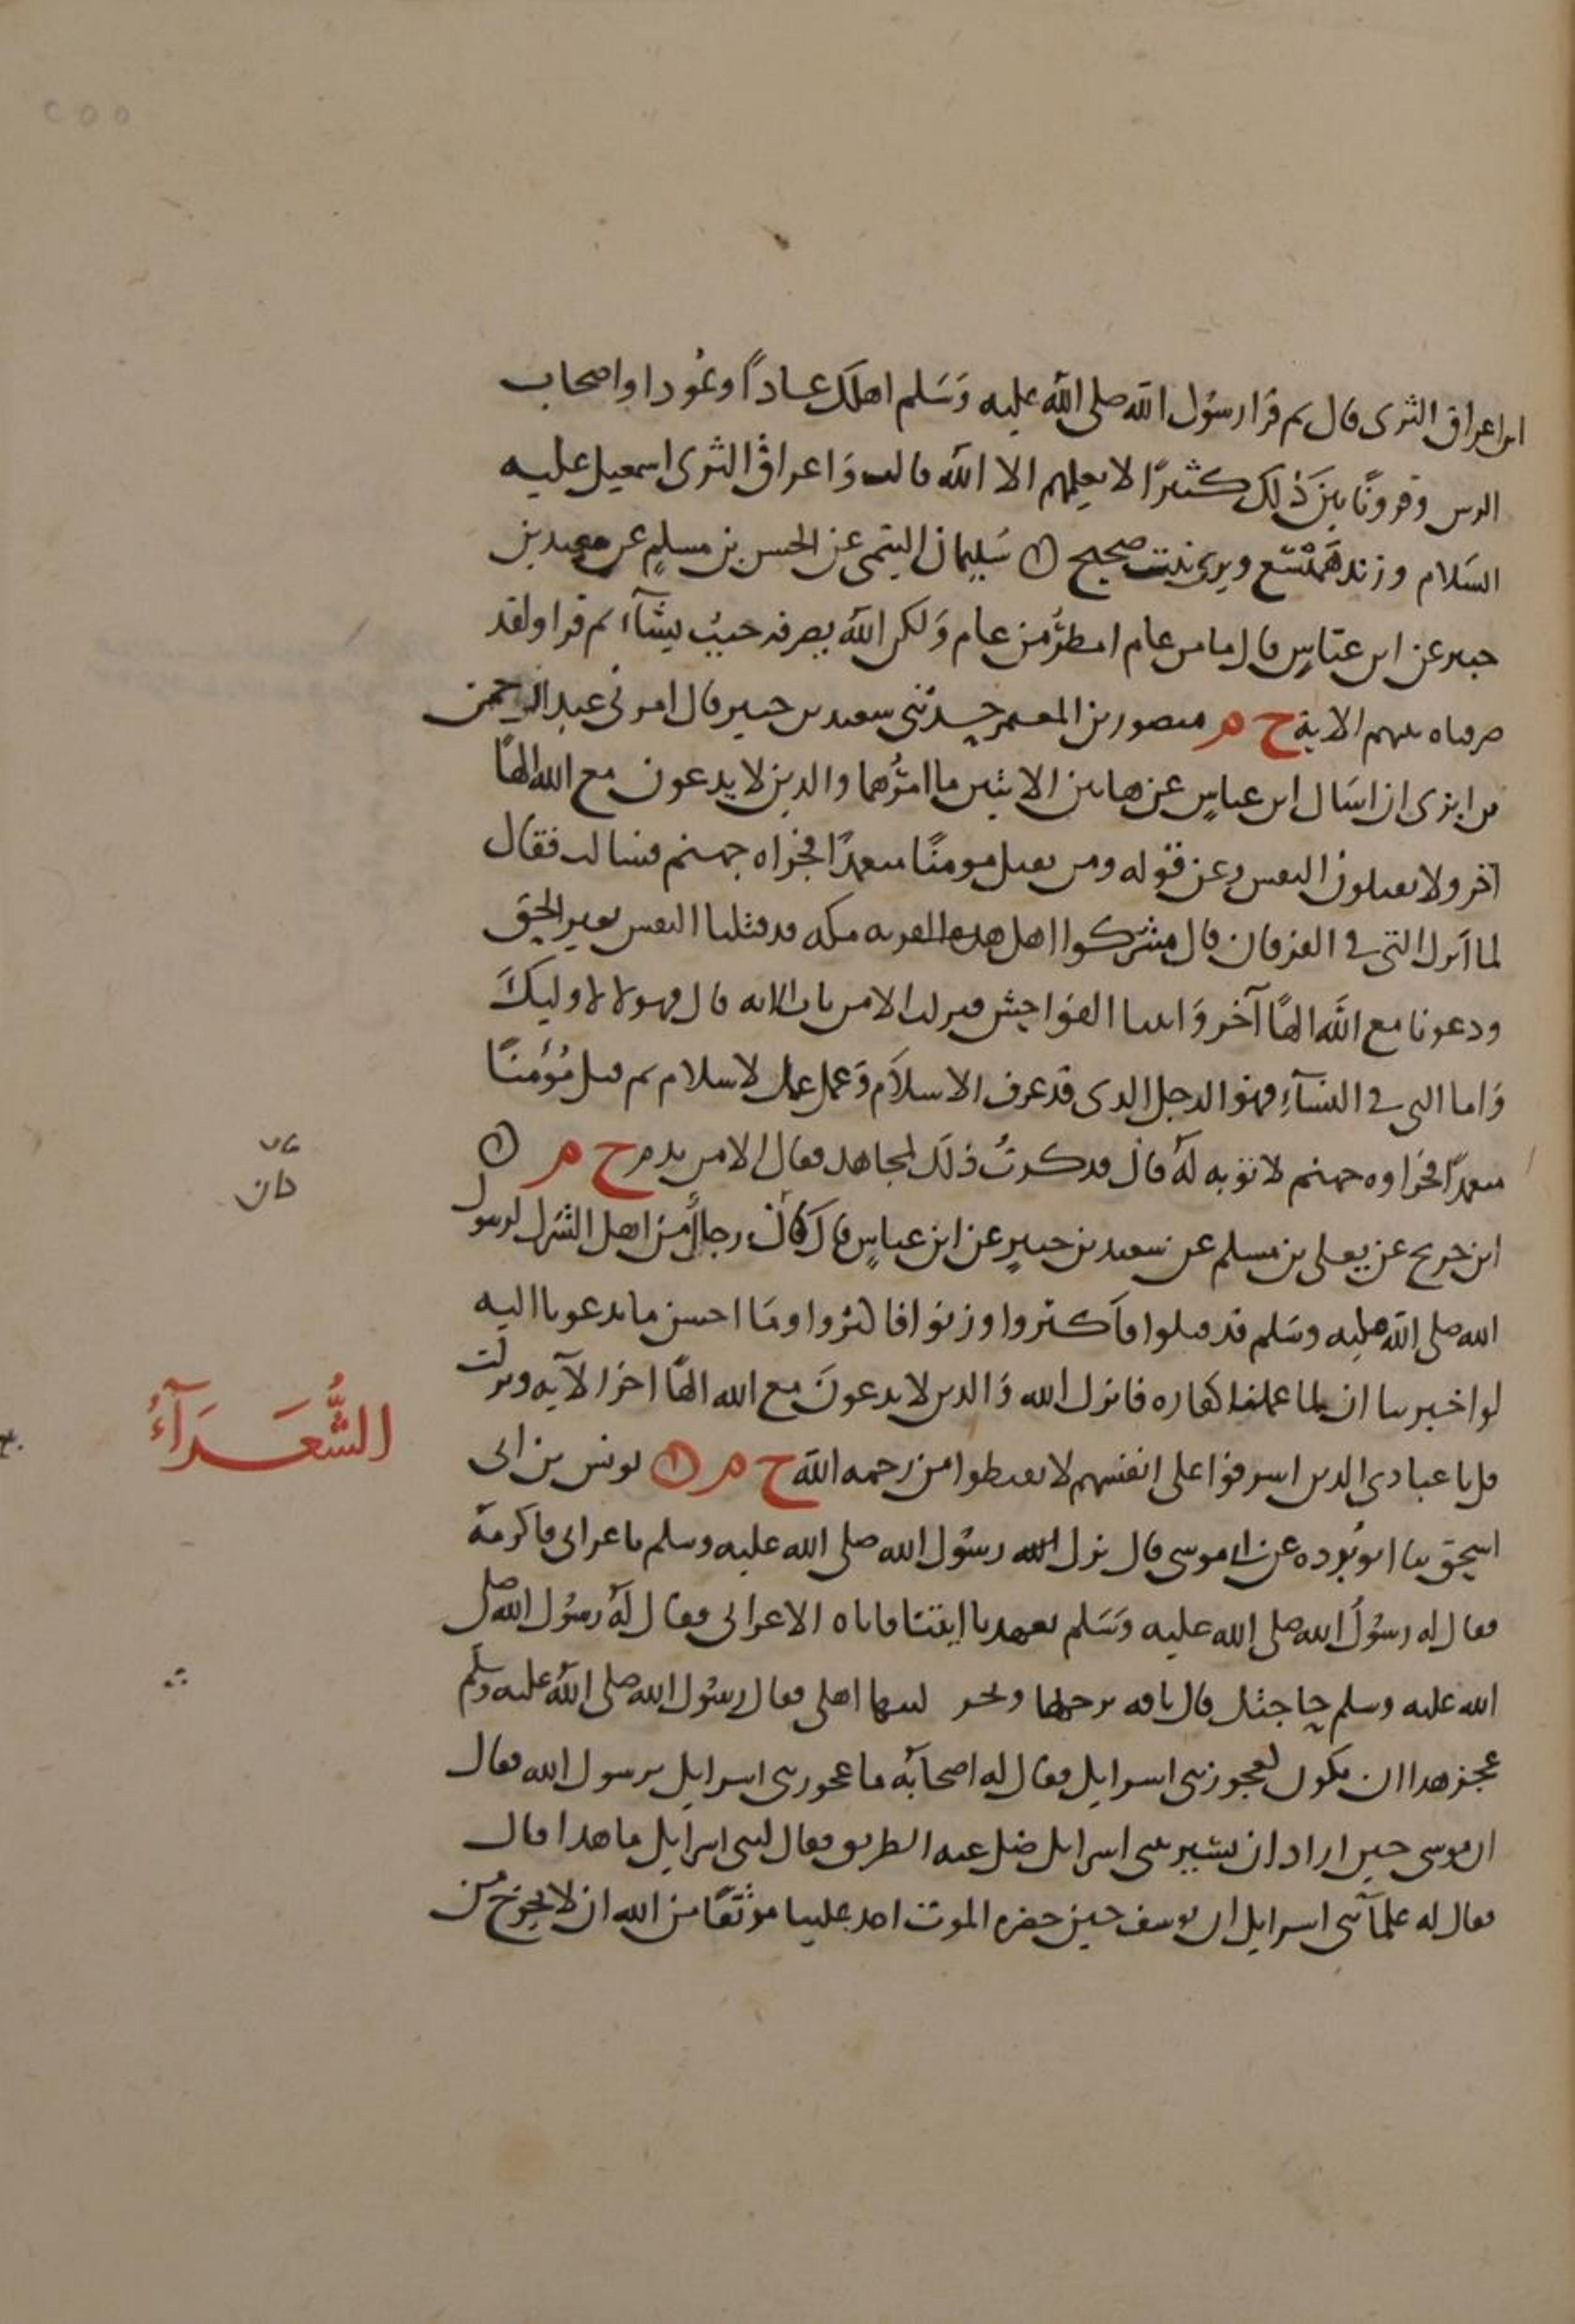 ابن اعراق الثرى قال ثم قرا رسول الله صلى الله عليه وسلم اهلك عادًا وثمودا واصحاب
الرس وقرونًا بين ذلك كثيرًا لا يعلمهم الا الله قالت واعراق الثرى اسمعيل عليه
السلام وزند هميسع وبرى نبت صحيح سليمان التيمي عن الحسن بن مسلم عن سعيد بن
جبير عن ابن عباس قال ما من عام امطر من عام ولكن الله يصرفه حيث يشآء ثم قرا ولقد
صرفناه بينهم الاية خ م منصور بن المعمر حدثني سعيد بن جبير قال امرني عبد الرحمن
بن ابزى ان اسال ابن عباس عن هاتين الايتين ما امرهما والذين لا يدعون مع الله الهًا
آخر ولا يقتلون النفس وعن قوله ومن يقتل مومنًا متعمدًا فجزاه جهنم فسالت فقال
لما انزل التي في الفرقان قال مشركوا اهل هذه القريه مكه قد قتلنا النفس بغير الحق
ودعونا مع الله الهًا آخر واتينا الفواحش فنزلت الا من تاب الايه قال فهولا لاوليك
واما التي في النسآء فهو الرجل الذى قد عرف الاسلام وعمل عمل لاسلام ثم قتل مؤمنًا
متعمدًا فجزاوه جهنم لا توبه له قال فذكرت ذلك لمجاهد فقال الا من ندم خ م
كان
ابن جريج عن يعلى بن مسلم عن سعيد بن جبير عن ابن عباس قال كان رجال من اهل الشرك لرسول
الله صلى الله عليه وسلم قد قتلوا فاكثروا وزنوا فاكثروا وما احسن ما تدعونا اليه
لو اخبرتنا ان لما عملنا كفاره فانزل الله والذين لا يدعون مع الله الهًا اخر الآيه ونزلت
السُّعَدَآءُ
قل يا عبادى الذين اسرفوا على انفسهم لا تقنطوا من رحمه الله خ م يونس بن ابى
اسحق ثنا ابو بُرده عن ابى موسى قال نزل رسول الله صلى الله عليه وسلم باعرابى فاكرمه
فقال له رسول الله صلى الله عليه وسلم تعهدنا ايتنا فاتاه الاعرابى فقال له رسول الله صلى
الله عليه وسلم حاجتك قال ناقه برحلها لبنها اهلى فقال رسول الله صلى الله عليه وسلم
عجز هذا ان يكون كعجوز بنى اسرايل فقال له اصحابه ما عجوز بنى اسرايل يرسول الله فقال
ان موسى حين اراد ان يسير ببنى اسرايل ضل عنه الطريق فقال لبنى اسرايل ما هذا قال
فقال له علمآ بنى اسرايل ان يوسف حين حضره الموت اخذ علينا موثقًا من الله ان لا نخرج من